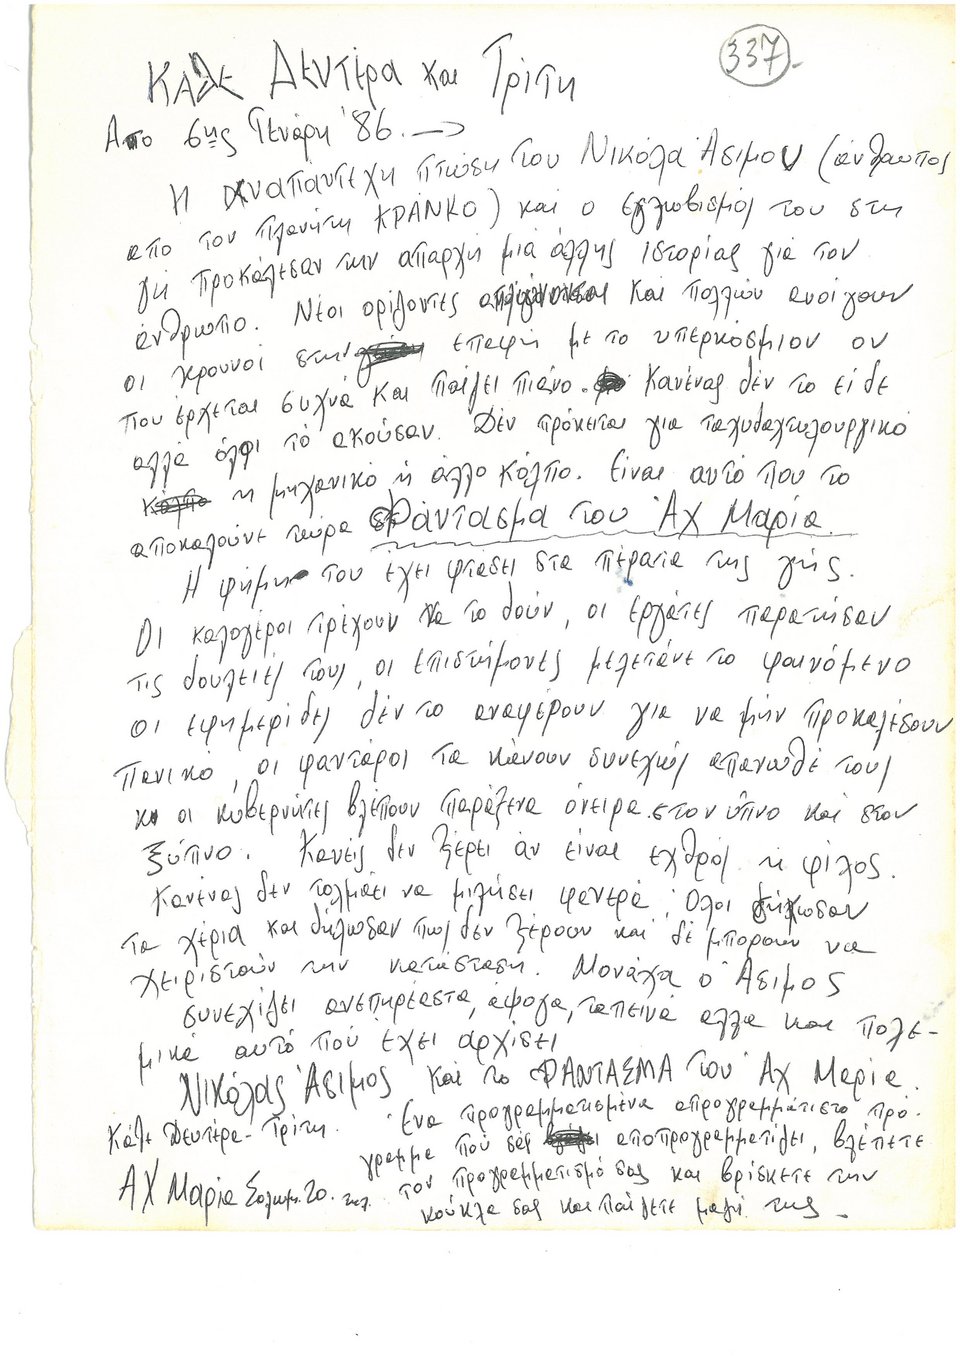 337
Κάθε Δευτέρα και Τρίτη
Απο 6ης Γενάρη '86 →
Η αναπάντεχη πτώση του Νικόλα Άσιμου (άνθρωπος
απο τον πλανήτη ΚΡΑΝΚΟ) και ο εγκλωβισμός του στη
γή προκάλεσαν την απαρχή μιά άλλης ιστορίας για τον
άνθρωπο. Νέοι ορίζοντες και πολλών ανοίγουν
οι κρουνοί στην επαφή με το υπερκόσμιον ον
που έρχεται συχνά και παίζει πιάνο. Κανένας δέν το είδε
αλλά όλοι τό ακούσαν. Δέν πρόκειται για ταχυδαχτυλουργικό
η μηχανικό ή άλλο κόλπο. Είναι αυτό που το
αποκαλούνε τώρα Φάντασμα του Αχ Μαρία
Η φήμη του έχει φτάσει στα πέρατα της γής.
Οι καλογέροι τρέχουν να το δούν, οι εργάτες παρατήσαν
τις δουλειές τους, οι επιστήμονες μελετάνε το φαινόμενο
οι εφημερίδες δέν το αναφέρουν για να μήν προκαλέσουν
πανικό, οι φαντάροι τα κάνουν συνεχώς απανωθέ τους
κι οι κυβερνήτες βλέπουν παράξενα όνειρα στον ύπνο και στον
ξύπνο. Κανείς δεν ξέρει άν είναι εχθρός ή φίλος.
Κανένας δεν τολμάει να μιλήσει φανερά. Όλοι σηκώσαν
τα χέρια και δηλώσαν πως δεν ξέρουν και δέ μπορούν να
χειριστούν την κατάσταση. Μονάχα ο Άσιμος
συνεχίζει ανεπηρέαστα, άψογα, ταπεινά αλλα και πολε-
μικά αυτό πού έχει αρχίσει
Νικόλας Άσιμος και το ΦΑΝΤΑΣΜΑ του Αχ Μαρία.
Κάθε Δευτέρα - Τρίτη. Ένα προγραμματισμένα απρογραμμάτιστο πρό-
γραμμα πού σάς αποπρογραμματίζει, βλέπετε
ΑΧ Μαρία Σολωμ. 20. τον προγραμματισμό σας και βρίσκετε την
κούκλα σας και παίζετε μαζί της -